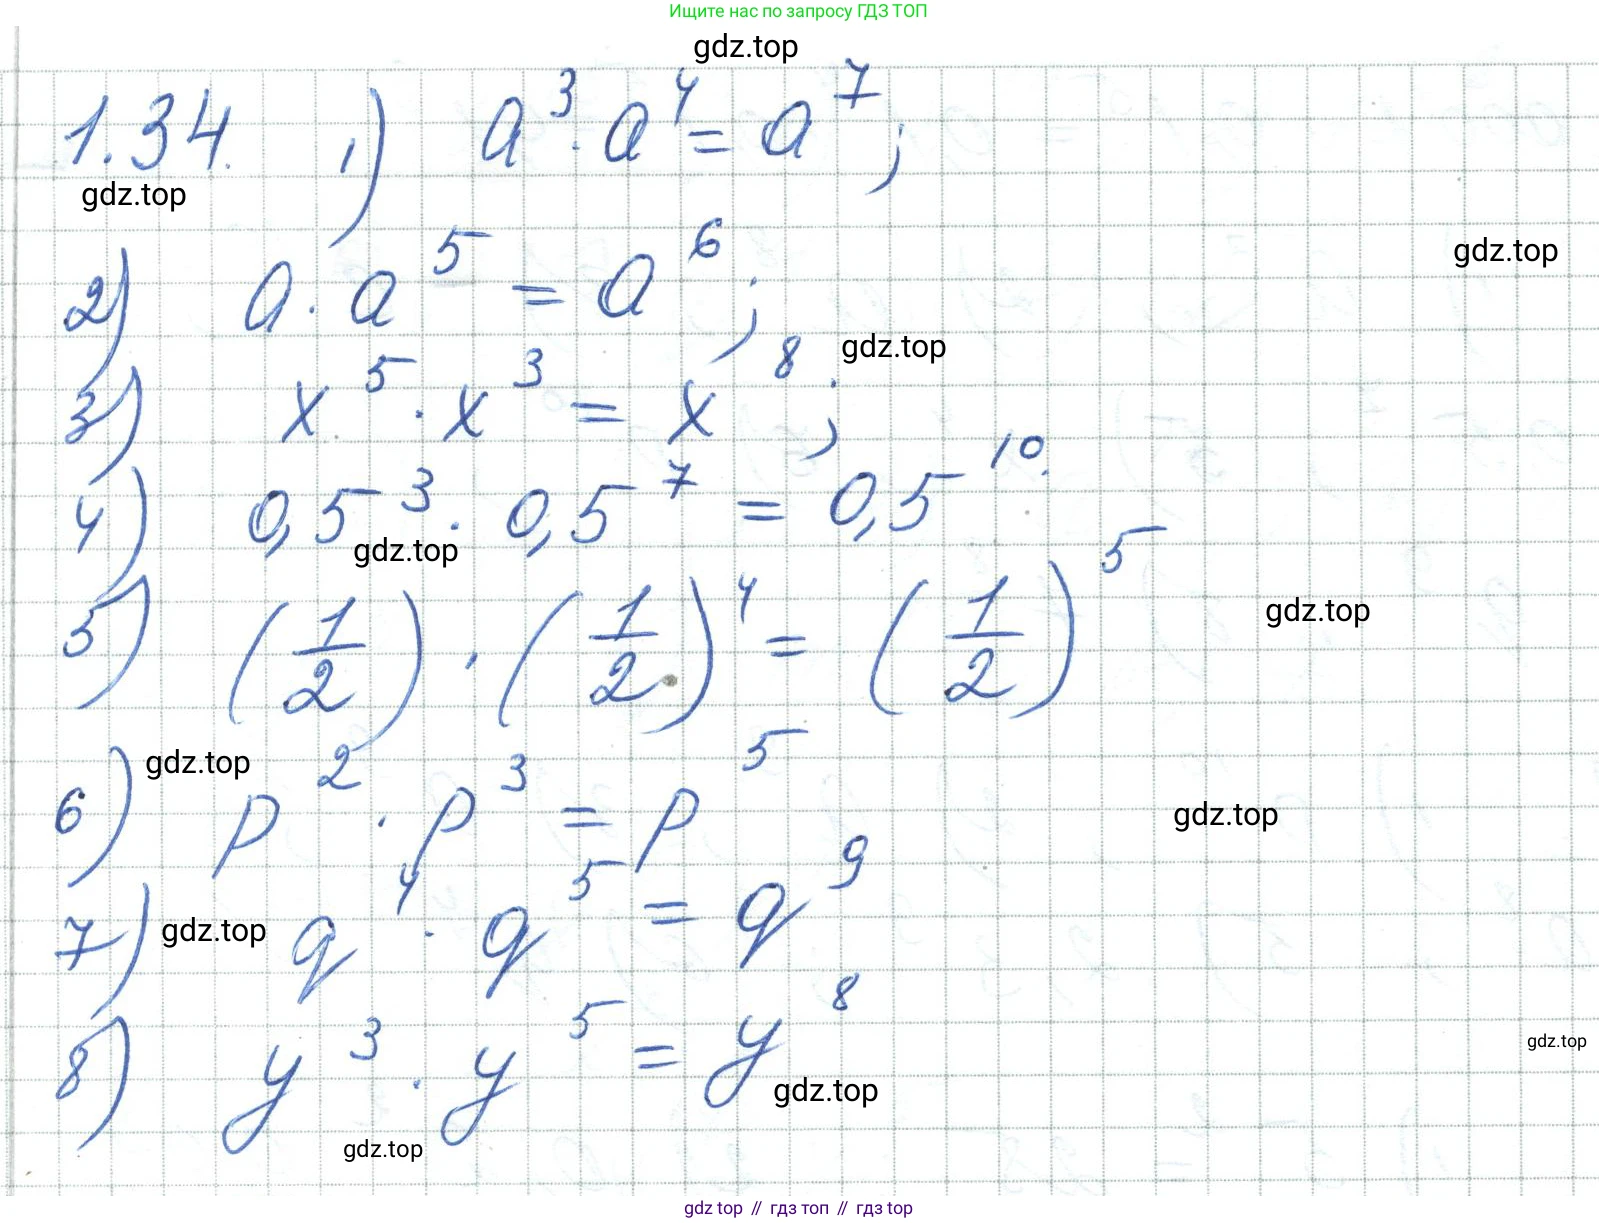 Ищите нас по запросу ГДЗ ТОП
gdz.top
1.34. 1) a³ · a⁴ = a⁷;
gdz.top
gdz.top
2) a · a⁵ = a⁶;
gdz.top
3) x⁵ · x³ = x⁸;
4) 0,5³ · 0,5⁷ = 0,5¹⁰.
gdz.top
gdz.top
5) (1/2) · (1/2)⁴ = (1/2)⁵
gdz.top
6) p² · p³ = p⁵
gdz.top
7) q⁴ · q⁵ = q⁹
gdz.top
8) y³ · y⁵ = y⁸
gdz.top
gdz.top
gdz.top
gdz top // гдз топ // гдз top